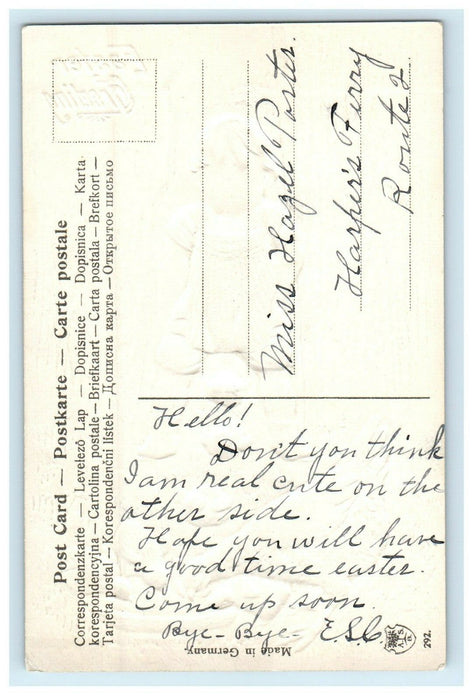 Post Card — Postkarte — Carte postale
Correspondenzkarte — Levelező Lap — Dopisnice — Dopisnica — Karta
korespondencyjna — Cartolina postale — Briefkaart — Carta postala — Brefkort —
Tarjeta postal — Korespondenční listek — Дописна карта — Открытое письмо
Miss Hazel Porter.
Harper's Ferry
Route 2.
Hello!
Don't you think
I am real cute on the
other side.
Hope you will have
a good time easter.
Come up soon.
Bye-Bye- E.S.C
Made in Germany.
292.